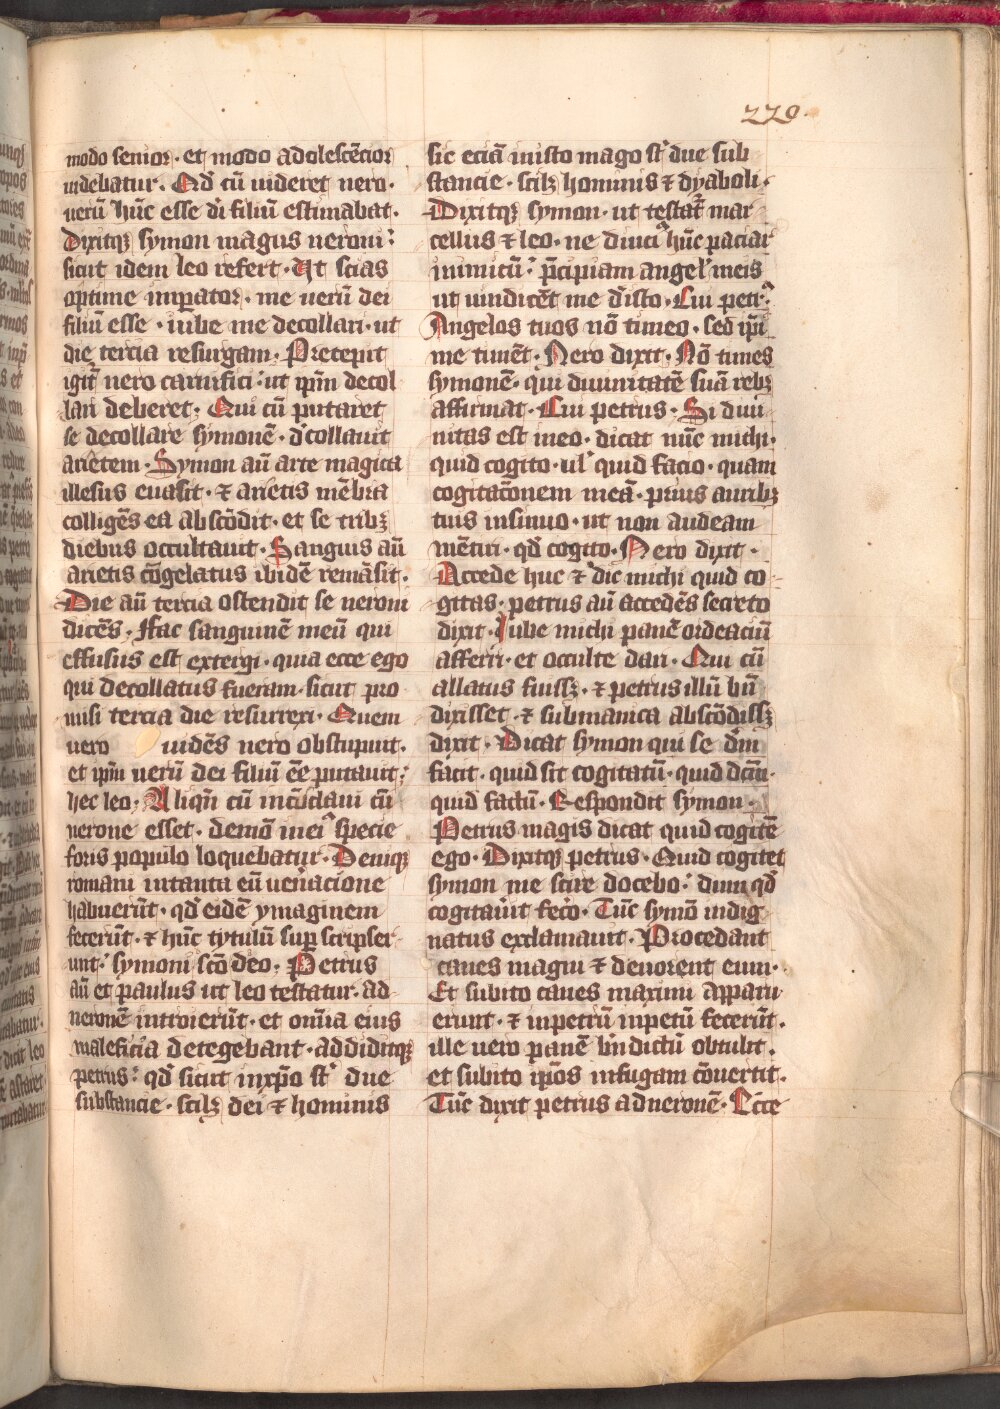 229.
modo senior · et modo adolescēcior
uidebatur. Qd̄ cū uideret nero ·
uerū hūc esse di filiū estimabat ·
Dixitqȝ symon magus neroni:
sicut idem leo refert · Ut scias
optime imꝑator · me uerū dei
filiū esse · iube me decollari · ut
die tercia resurgam · Precepit
igit̄ nero carnifici · ut ipm̄ decol
lari deberet · Qui cū putaret
se decollare symonē · d'collauit
arietem · Symon aū arte magica
illesus euasit · ⁊ arietis mēbra
colligēs ea abscōdit · et se tribȝ
diebus occultauit · Sanguis aū
arietis cōgelatus ibidē remāsit ·
Die aū tercia ostendit se neroni
dicēs · Ffac sanguinē meū qui
effusus est extergi · quia ecce ego
qui decollatus fueram · sicut pro
misi tercia die resurrexi · Quem
uero uidēs nero obstupuit ·
et ipm̄ uerū dei filiū ēe putauit:
hec leo · Aliqn̄ cū in cūclaui cū
nerone esset · demō in ei᷒ specie
foris populo loquebatur · Deniqȝ
romani in tanta eū uen̄acione
habuerūt · qd̄ eidē ymaginem
fecerūt · ⁊ hūc tytulū suꝑ scripser
unt: symoni scō deo · Petrus
aū et paulus ut leo testatur · ad
neronē introierūt · et om̄ia eius
maleficia detegebant · addiditqȝ
petrus: qd̄ sicut in xp̄o st̄ due
substancie · scilȝ dei ⁊ hominis
sic eciā in isto mago st̄ due sub
stancie · scilȝ hominis ⁊ dyaboli ·
Dixitqȝ symon · ut testat̄ mar
cellus ⁊ leo · ne diuci᷒ hūc paciar
inimicū: p̄cipiam angel' meis
ut uindicēt me d'isto · Cui petr᷒:
Angelos tuos nō timeo · sed ip̄i
me timēt · Nero dixit · Nō times
symonē · qui diuinitatē suā rebȝ
affirmat · Cui petrus · Si diui
nitas est in eo · dicat nūc michi ·
quid cogito · ul' quid facio · quam
cogitac̄onem meā · prius auribȝ
tuis insinuo · ut non audeam
mētiri · qd̄ cogito · Nero dixit ·
Accede huc ⁊ dic michi quid co
gitas · petrus aū accedēs secreto
dixit · Iube michi panē ordeaciū
afferri · et occulte dari · Qui cū
allatus fuissȝ · ⁊ petrus illū bn̄
dixisset · ⁊ sub manica abscōdissȝ
dixit · Dicat symon qui se dm̄
facit · quid sit cogitatū · quid dc̄m ·
quid factū · Respondit symon ·
Petrus magis dicat quid cogitē
ego · Dixitqȝ petrus · Quid cogitet
symon me scire docebo: dum qd̄
cogitau̇it fec̄o · Tūc symō indig
natus exclamauit · Procedant
canes magni ⁊ deuorent eum ·
Et subito canes maximi apparu
erunt · ⁊ in petrū inpetū fecerūt ·
ille uero panē bn̄dictū obtulit ·
et subito ip̄os in fugam cōuertit ·
Tūc dixit petrus ad neronē · Ecce